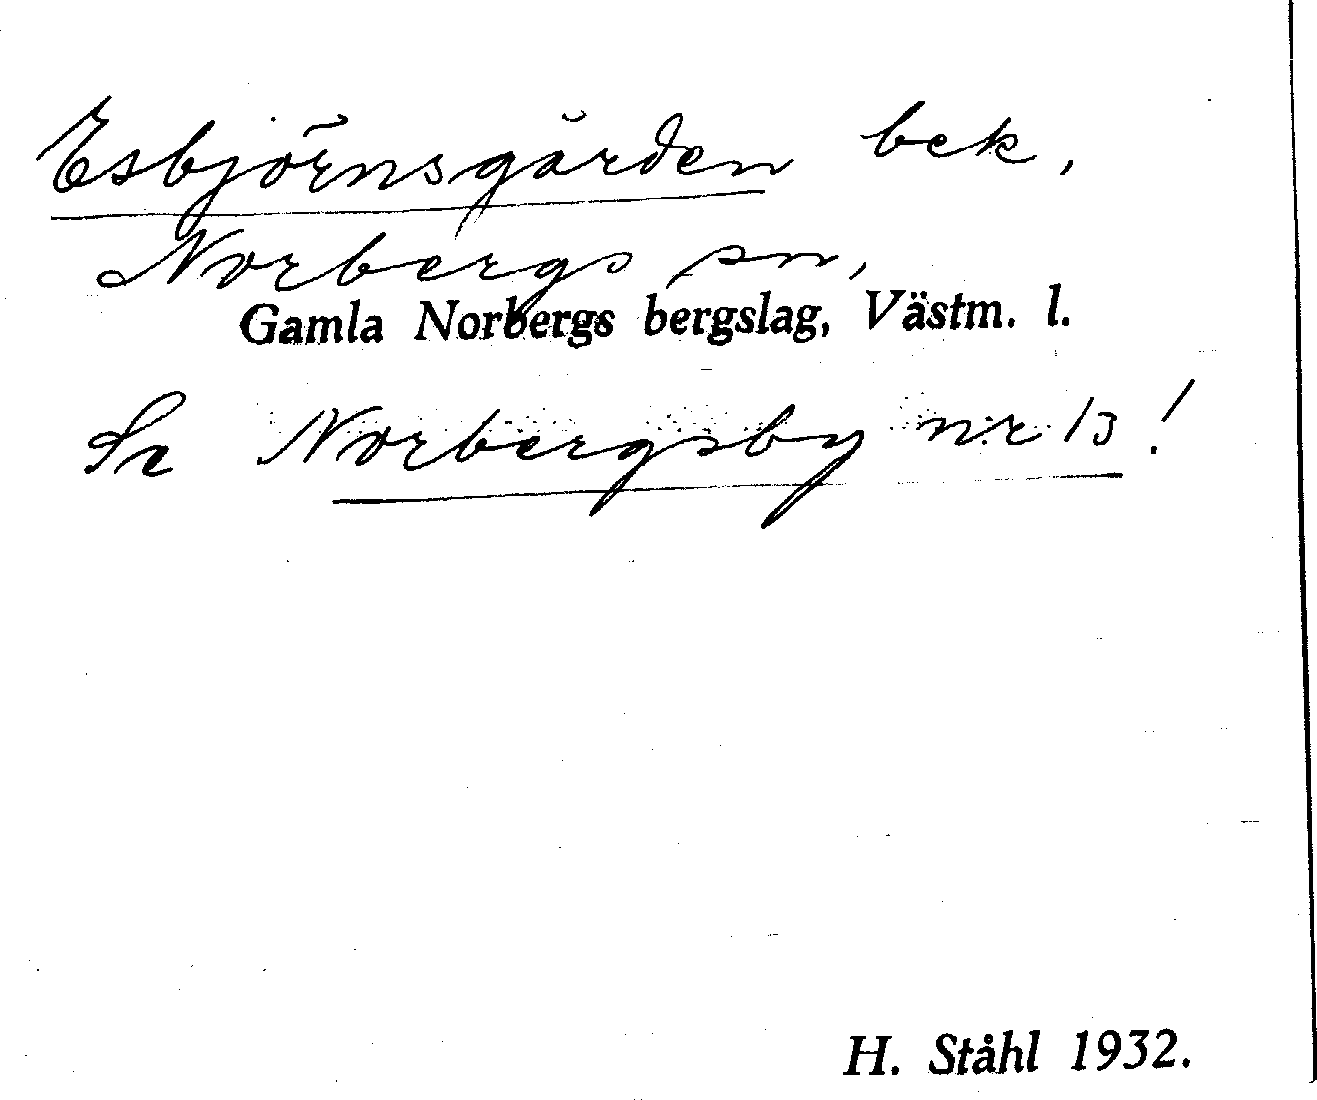 Esbjörnsgården bek,
Norbergs sn,
Gamla Norbergs bergslag, Västm. l.
Se Norbergsby nr 13!
H. Ståhl 1932.